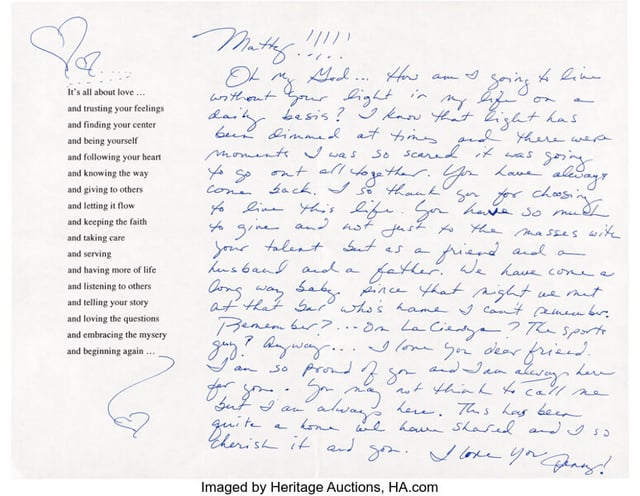 It's all about love ...
and trusting your feelings
and finding your center
and being yourself
and following your heart
and knowing the way
and giving to others
and letting it flow
and keeping the faith
and taking care
and serving
and having more of life
and listening to others
and telling your story
and loving the questions
and embracing the mysery
and beginning again ...
Matty !!!!!
Oh my God... How am I going to live
without your light in my life on a
daily basis? I know that light has
been dimmed at times and there were
moments I was so scared it was going
to go out all together. You have always
come back. I so thank you for choosing
to live this life. You have so much
to give and not just to the masses with
your talent but as a friend and a
husband and a father. We have come a
long way baby. since that night we met
at that bar who's name I can't remember.
Remember? ... On La Cienega? The sports
guy? Anyway.... I love you dear friend.
I am so proud of you and I am always here
for you. You may not think to call me
but I am always here. This has been
quite a home we have shared and I so
cherish it and you. I love you
Jenny!
Imaged by Heritage Auctions, HA.com